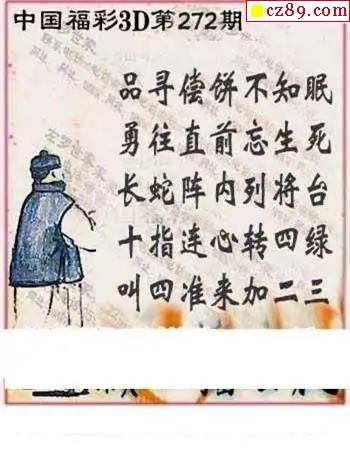 中国福彩3D第272期
cz89.com
品寻偿饼不知眠
勇往直前忘生死
长蛇阵内列将台
十指连心转四绿
叫四准来加二三